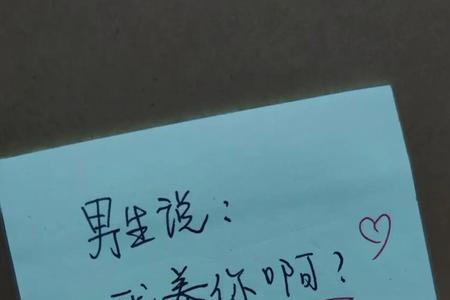 男生说：
我养你啊？